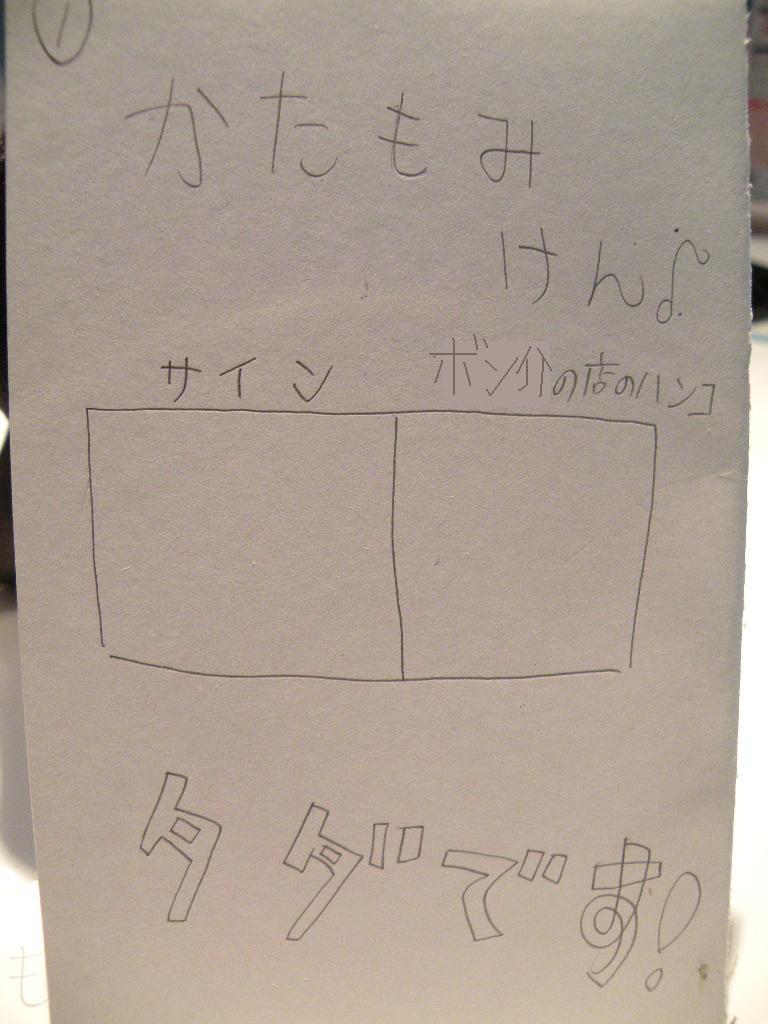 ①
かたもみ
けん♪
サイン ボン介の店のハンコ
タダです!
も